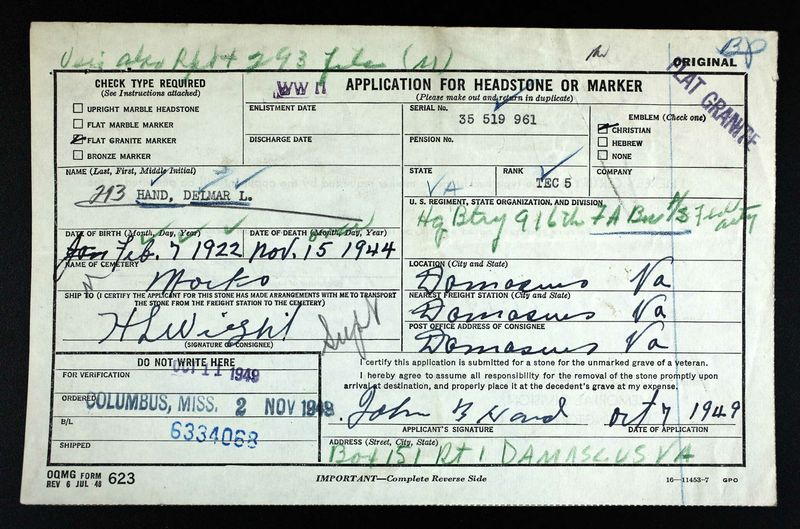 293 files (M)
BP
ORIGINAL
WW II
APPLICATION FOR HEADSTONE OR MARKER
(Please make out and return in duplicate)
FLAT GRANITE
CHECK TYPE REQUIRED
(See Instructions attached)
UPRIGHT MARBLE HEADSTONE
FLAT MARBLE MARKER
FLAT GRANITE MARKER
BRONZE MARKER
ENLISTMENT DATE
DISCHARGE DATE
SERIAL No.
35 519 961
PENSION No.
EMBLEM (Check one)
CHRISTIAN
HEBREW
NONE
NAME (Last, First, Middle Initial)
293 HAND, DELMAR L.
STATE
VA
RANK
TEC 5
COMPANY
U. S. REGIMENT, STATE ORGANIZATION, AND DIVISION
Hq Btry 916th FA Bn
DATE OF BIRTH (Month, Day, Year)
Feb. 7 1922
DATE OF DEATH (Month, Day, Year)
Nov. 15 1944
NAME OF CEMETERY
Mocks
LOCATION (City and State)
Damascus Va
SHIP TO (I CERTIFY THE APPLICANT FOR THIS STONE HAS MADE ARRANGEMENTS WITH ME TO TRANSPORT
THE STONE FROM THE FREIGHT STATION TO THE CEMETERY)
H L Wright
Supt
(SIGNATURE OF CONSIGNEE)
NEAREST FREIGHT STATION (City and State)
Damascus Va
POST OFFICE ADDRESS OF CONSIGNEE
Damascus Va
DO NOT WRITE HERE
FOR VERIFICATION
OCT 11 1949
ORDERED
COLUMBUS, MISS. 2 NOV 1949
B/L
6334068
SHIPPED
I certify this application is submitted for a stone for the unmarked grave of a veteran.
I hereby agree to assume all responsibility for the removal of the stone promptly upon
arrival at destination, and properly place it at the decedent's grave at my expense.
John B Hand Oct 7 1949
APPLICANT'S SIGNATURE
DATE OF APPLICATION
ADDRESS (Street, City, State)
Box 151 Rt 1 DAMASCUS VA
OQMG FORM
REV 6 JUL 48 623
IMPORTANT—Complete Reverse Side
16—11453-7 GPO